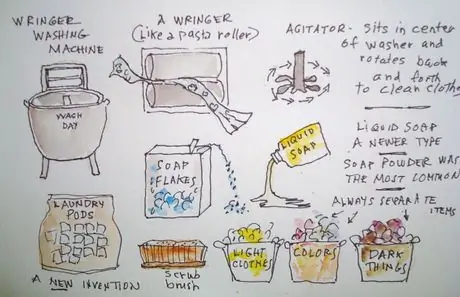 WRINGER
WASHING
MACHINE
WASH
DAY
A WRINGER
(Like a pasta roller)
AGITATOR- Sits in center
of washer and
rotates back
and forth
to clean clothe
SOAP
FLAKES
LIQUID
SOAP
LIQUID SOAP
A NEWER TYPE
SOAP POWDER WAS
THE MOST COMMON
LAUNDRY
PODS
A NEW INVENTION
scrub
brush
ALWAYS SEPARATE
ITEMS
LIGHT
CLOTHES
COLORS
DARK
THINGS